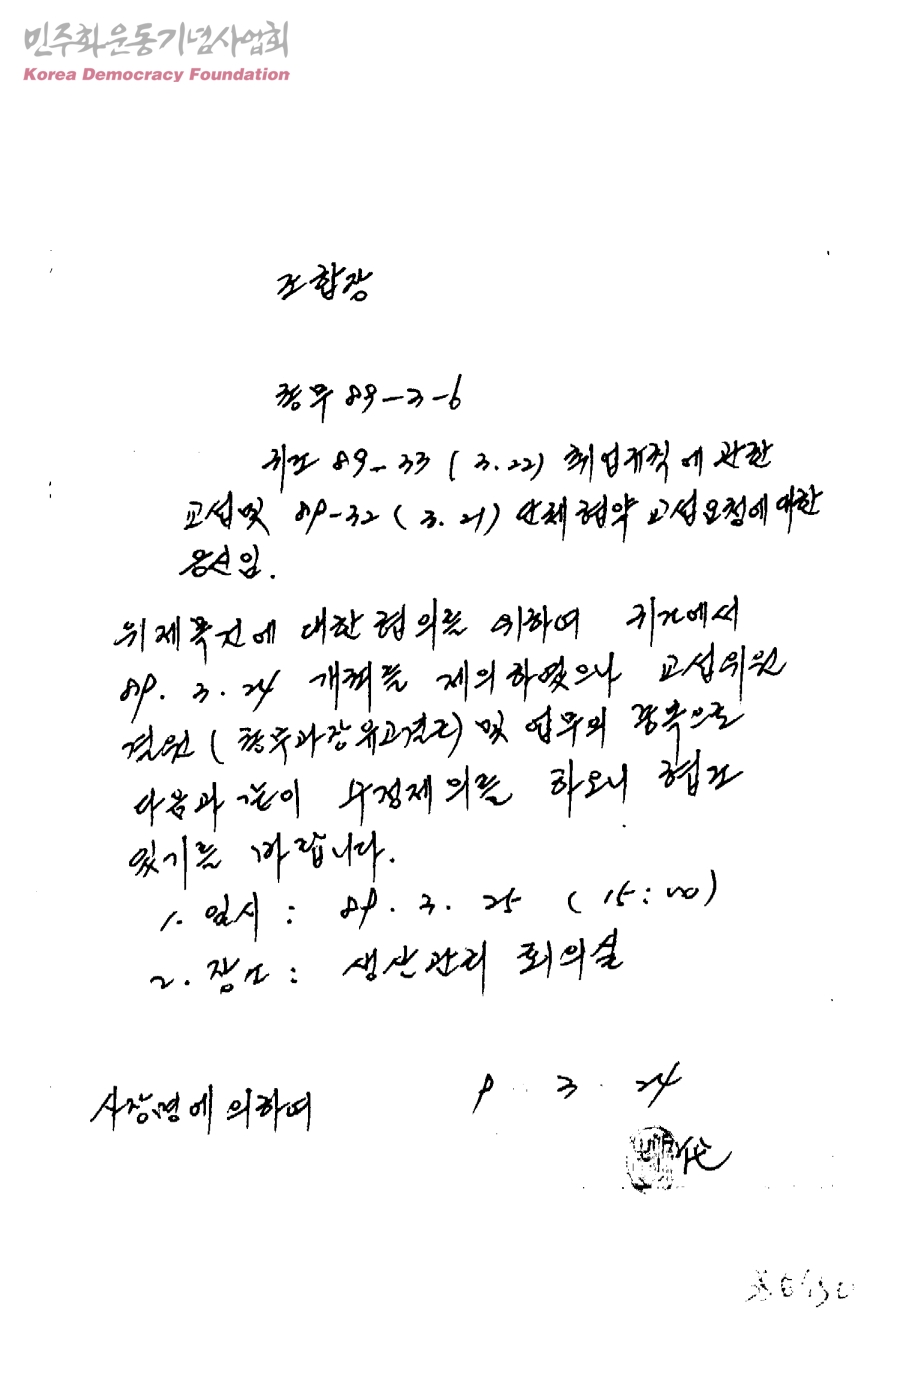 민주화운동기념사업회
Korea Democracy Foundation
조합장
총무 89-3-6
귀조 89-33 (3.22) 취업규칙에 관한
교섭및 89-32 (3.21) 단체협약 교섭요청에 대한
응신임.
위 제목건에 대한 협의를 위하여 귀조에서
89. 3. 24 개최를 제의하였으나 교섭위원
결원 (총무과장 유고결근) 및 업무의 폭주으로
다음과 같이 수정제의를 하오니 협조
있기를 바랍니다.
1. 일시 : 89. 3. 25 (15:00)
2. 장소 : 생산관리 회의실
9 . 3 . 24
사장명에 의하여
代